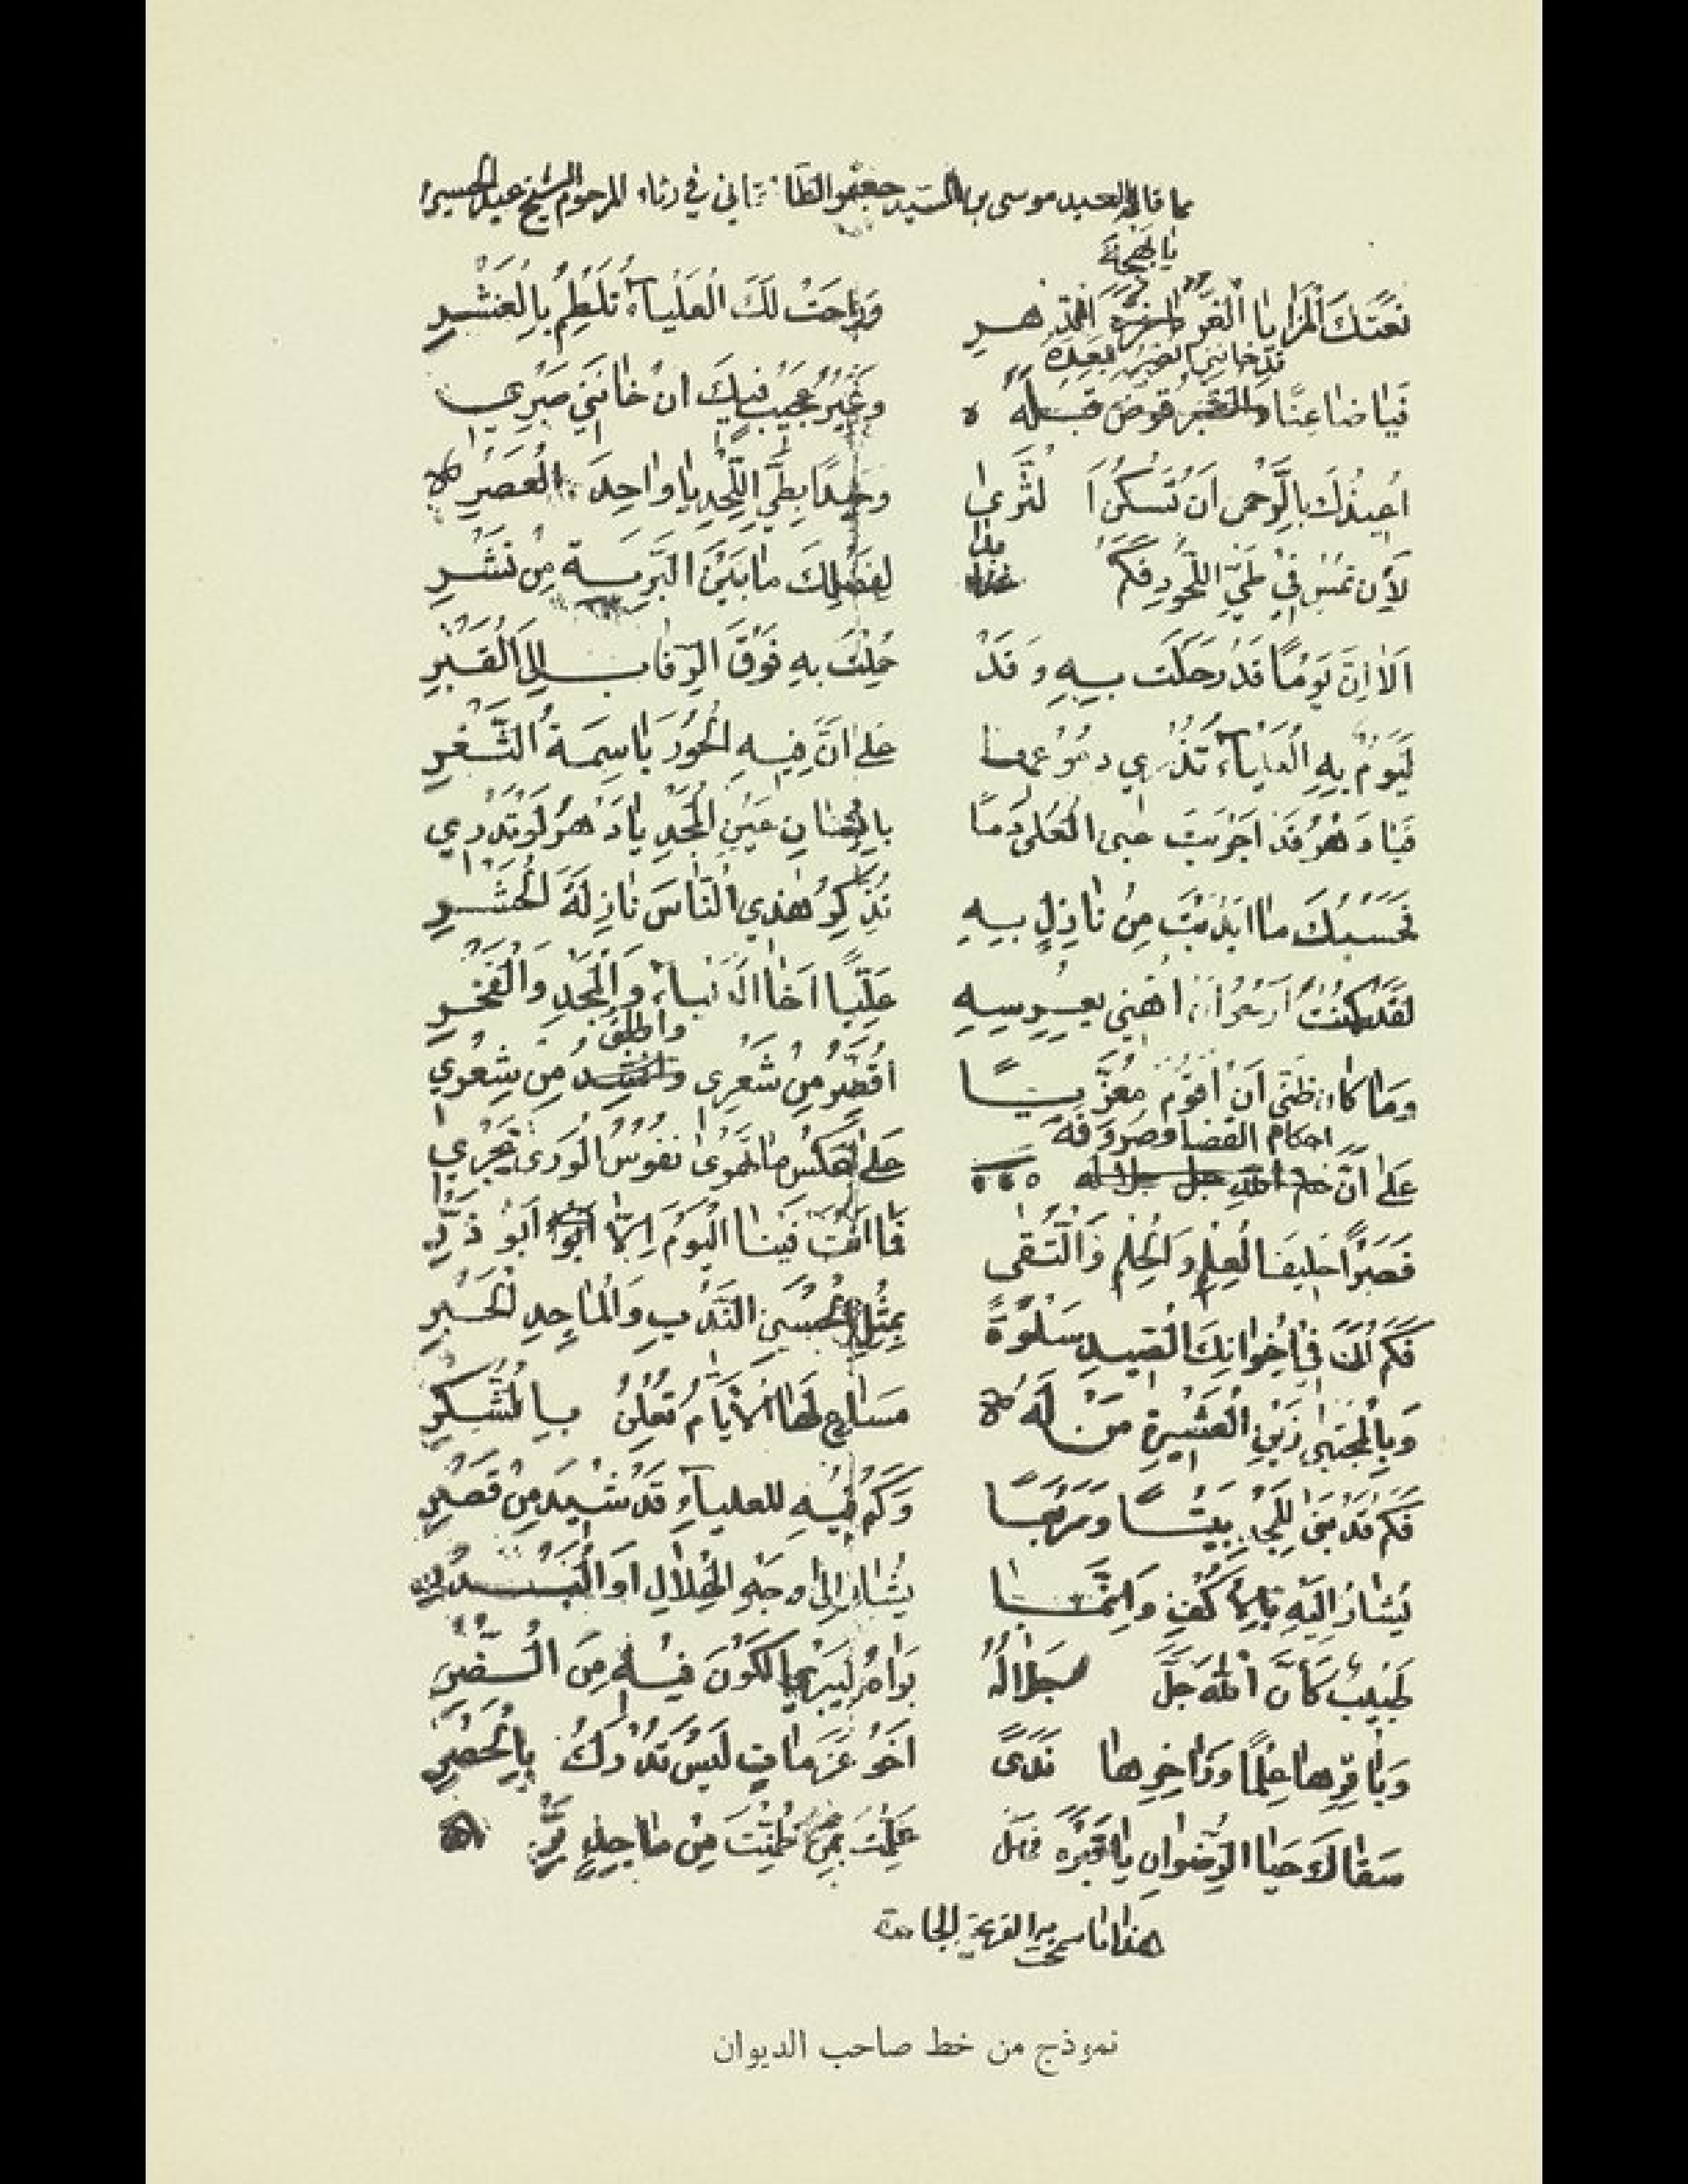 مما قاله العبد موسى بن السيد جعفر الطالقاني في رثاء المرحوم الشيخ عبد الحسين
يا بهجة
نعتك المزايا الغر الدهر وراحت لك العلياء تلطم بالعشر
قد خانني الصبر بعده
فيا ضاعنا والصبر قوض قبله وغير عجيب فيك ان خانني صبري
اعيذك بالرحمن ان تسكن الثرى وحيدا بطي اللحد يا واحد العصر
بدا
لأن تمس في طي اللحود فكم لفضلك ما بين البرية من نشر
الا ان يوما قد رحلت به وقد حملت به فوق الرقاب الى القبر
ليوم به العلياء تذري دموعها على ان فيه الحور باسمة الثغر
فيا دهر قد اجريت عين العلى دما بانسان عين المجد يا دهر لو تدري
فحسبك ما ابديت من نازل به تذكر هذي الناس نازلة الحشر
لقد كنت ارجو ان اهني بعرسه عليا اخا الأنباء والمجد والفخر
واطلق
وما كان ظني ان اقوم معزيا اقصر من شعري من شعري
احكام القضا وصروفه
على ان جل جلاله على عكس ما تهوى نفوس الورى تجري
فصبرا حليف العلم والحلم والتقى فما انت فينا اليوم الا ابو ذر
فكم لك في اخوانك الصيد سلوة بمثل الحسين الندب والماجد الحبر
وبالمجتبى زين العشيرة من له مساع لها الأيام تعلن بالشكر
فكم قد بنى للمجد بيتا ومربعا وكم فيه للعلياء قد شيد من قصر
يشار اليه بالأكف وانما يشار الى وجه الهلال او البدر
طبيب كأن الله جل جلاله براه ليبري الكون فيه من الضر
وباقرها علما وزاخرها ندى اخو عزمات ليس تدرك بالحصر
سقاك حيا الرضوان يا قبره فهل علمت بمن ضمنت من ماجد بر
هذا ما سمحت به القريحة الجامدة
نموذج من خط صاحب الديوان